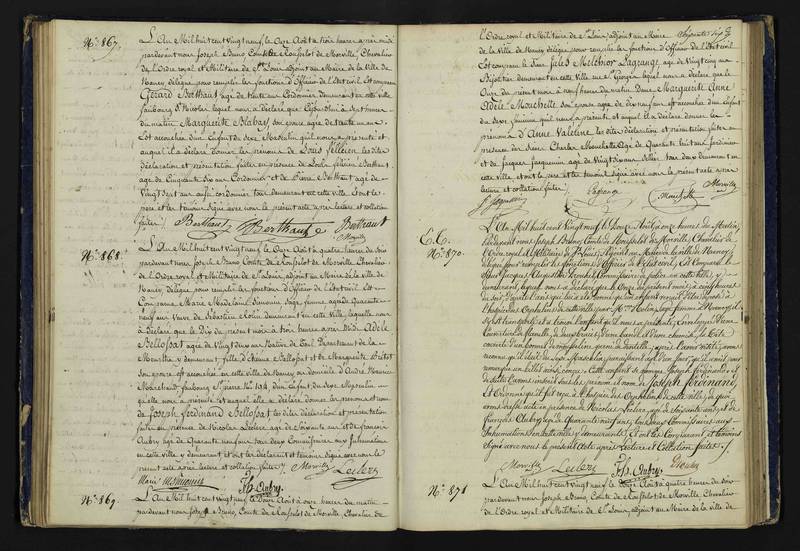 N.o 867.
L'An Mil huit cent vingt neuf le Onze Août à trois heures après midi
pardevant nous Joseph Bruno Comte de Coussolot de Morville, Chevalier
de l'Ordre royal et Militaire de St Louis, adjoint au Maire de la Ville de
Nancy, délégué pour remplir les fonctions d'Officier de l'état civil. Est comparu
Gérard Berthaut agé de trente un ans Cordonnier, demeurant en cette ville
faubourg St Nicolas lequel nous a déclaré que Cejourd'hui à sept heures
du matin Marguerite Blabay, son épouse agée de trente un ans
Est accouchée d'un Enfant du sexe Masculin qu'il nous a présenté et
auquel il a déclaré donner les prénoms de Louis félicien. Les dites
déclaration et présentation faites en présence de Louis félicien Berthaut
agé de Cinquante six ans Cordonnier et de Pierre Berthaut agé de
Vingt sept ans aussi cordonnier tous demeurant en cette ville. Et ont le
père et les témoins signé avec nous le présent acte après lecture et collation
faites./. Berthaut Berthaut Berthaut
Morville
N.o 868.
L'An Mil huit cent vingt neuf le Onze Août à quatre heures du soir
pardevant nous Joseph Bruno Comte de Coussolot de Morville, Chevalier
de l'Ordre royal et Militaire de St Louis, adjoint au Maire de la ville de
Nancy, délégué pour remplir les fonctions d'Officier de l'état civil. Est
Comparue Marie Madelaine Simonin Sage femme agée de Quarante
neuf ans Veuve de Sébastien demeurant en cette Ville, laquelle nous
à déclaré que le Dix du présent mois à trois heures après Midi Adèle
Bellossat agée de Vingt deux ans Native de Toul Département de la
Meurthe y demeurant, fille d'Etienne Bellossat et de Marguerite
son épouse est accouchée en cette ville de Nancy au domicile d'André Maurice
Marchand, faubourg St pierre N.o 194, d'un Enfant du Sexe Masculin
qu'elle nous a présenté, et auquel elle a déclaré donner les prénoms et nom
de Joseph ferdinand Bellossat. Les dites déclaration et présentation
faites en présence de Nicolas Leclerc agé de Soixante ans et de françois
Aubry agé de Quarante neuf ans tous deux Commissaires aux Inhumations
en cette ville y demeurant. Et ont les déclarante et témoins signé avec nous le
présent acte après lecture et collation faites./. Morville Leclerc
Marie Simonin f.ois Aubry
N.o 869.
L'An Mil huit cent vingt neuf le Douze Août à onze heures du matin
pardevant nous Joseph Bruno, Comte de Coussolot de Morville, Chevalier de
l'Ordre royal et Militaire de St Louis, adjoint au Maire
de la Ville de Nancy délégué pour remplir les fonctions d'Officier de l'état civil.
Est comparu le Sieur Jules Melchior Lagrange agé de Vingt cinq ans
Bijoutier demeurant en cette ville rue St Georges lequel nous a déclaré que le
Onze du présent mois à neuf heures du matin Dame Marguerite Anne
Adèle Mouchette son épouse agée de dix neuf ans est accouchée d'un Enfant
du sexe féminin qu'il nous a présenté, et auquel il a déclaré donner les
prénoms d'Anne Valérine. Les dites déclaration et présentation faites en
présence du Sieur Charles Mouchette agé de Quarante huit ans
et de Jacques Jacquemin agé de Vingt six ans tous deux demeurant en
cette ville, et ont le père et les témoins signé avec nous le présent acte après
lecture et collation faites./. Lagrange Mouchette Morville
J. Jacquemin
E.C.
N.o 870.
L'An Mil huit cent Vingt Neuf le Douze Août à onze heures du Matin,
pardevant nous Joseph Bruno Comte de Coussolot de Morville, Chevalier de
l'Ordre royal et Militaire de St Louis, Adjoint au Maire de la Ville de Nancy,
délégué pour remplir les fonctions d'Officier de l'Etat civil. Est Comparu le
Sieur Jacques Augustin Commissaire de police en cette Ville, y
demeurant, lequel nous a déclaré que le Onze du présent mois, à cinq heures
du soir,
l'hospice des Orphelins de cette ville par
s'y est transporté et a trouvé l'enfant qu'il nous a présenté, enveloppé
Couverte de flanelle, de deux vêtu d'une chemise, la tête
couverte d'un bonnet de mousseline garni de dentelle; après l'avoir visité, avons
reconnu qu'il était du sexe Masculin, paraissant agé d'un jour, qu'il n'avait pour
remarque un billet ainsi conçu: Cet enfant se nomme Joseph Ferdinand et
de suite l'avons inscrit sous les prénom et nom de Joseph Ferdinand,
Et ordonné qu'il fut remis à l'hospice des Orphelins de cette ville; de quoi
avons dressé acte en présence de Nicolas Leclerc agé de Soixante ans, et de
François Aubry agé de Quarante neuf ans, tous deux Commissaires aux
Inhumations en cette ville y demeurant. Et ont les Comparant et témoins
Signé avec nous le présent Acte après Lecture et Collation faites./.
Morville Leclerc f.ois Aubry
N.o 871
L'An Mil huit cent Vingt neuf le Douze Août à quatre heures du soir
pardevant nous Joseph Bruno, Comte de Coussolot de Morville, Chevalier
de l'Ordre royal et Militaire de St Louis, adjoint au Maire de la Ville de